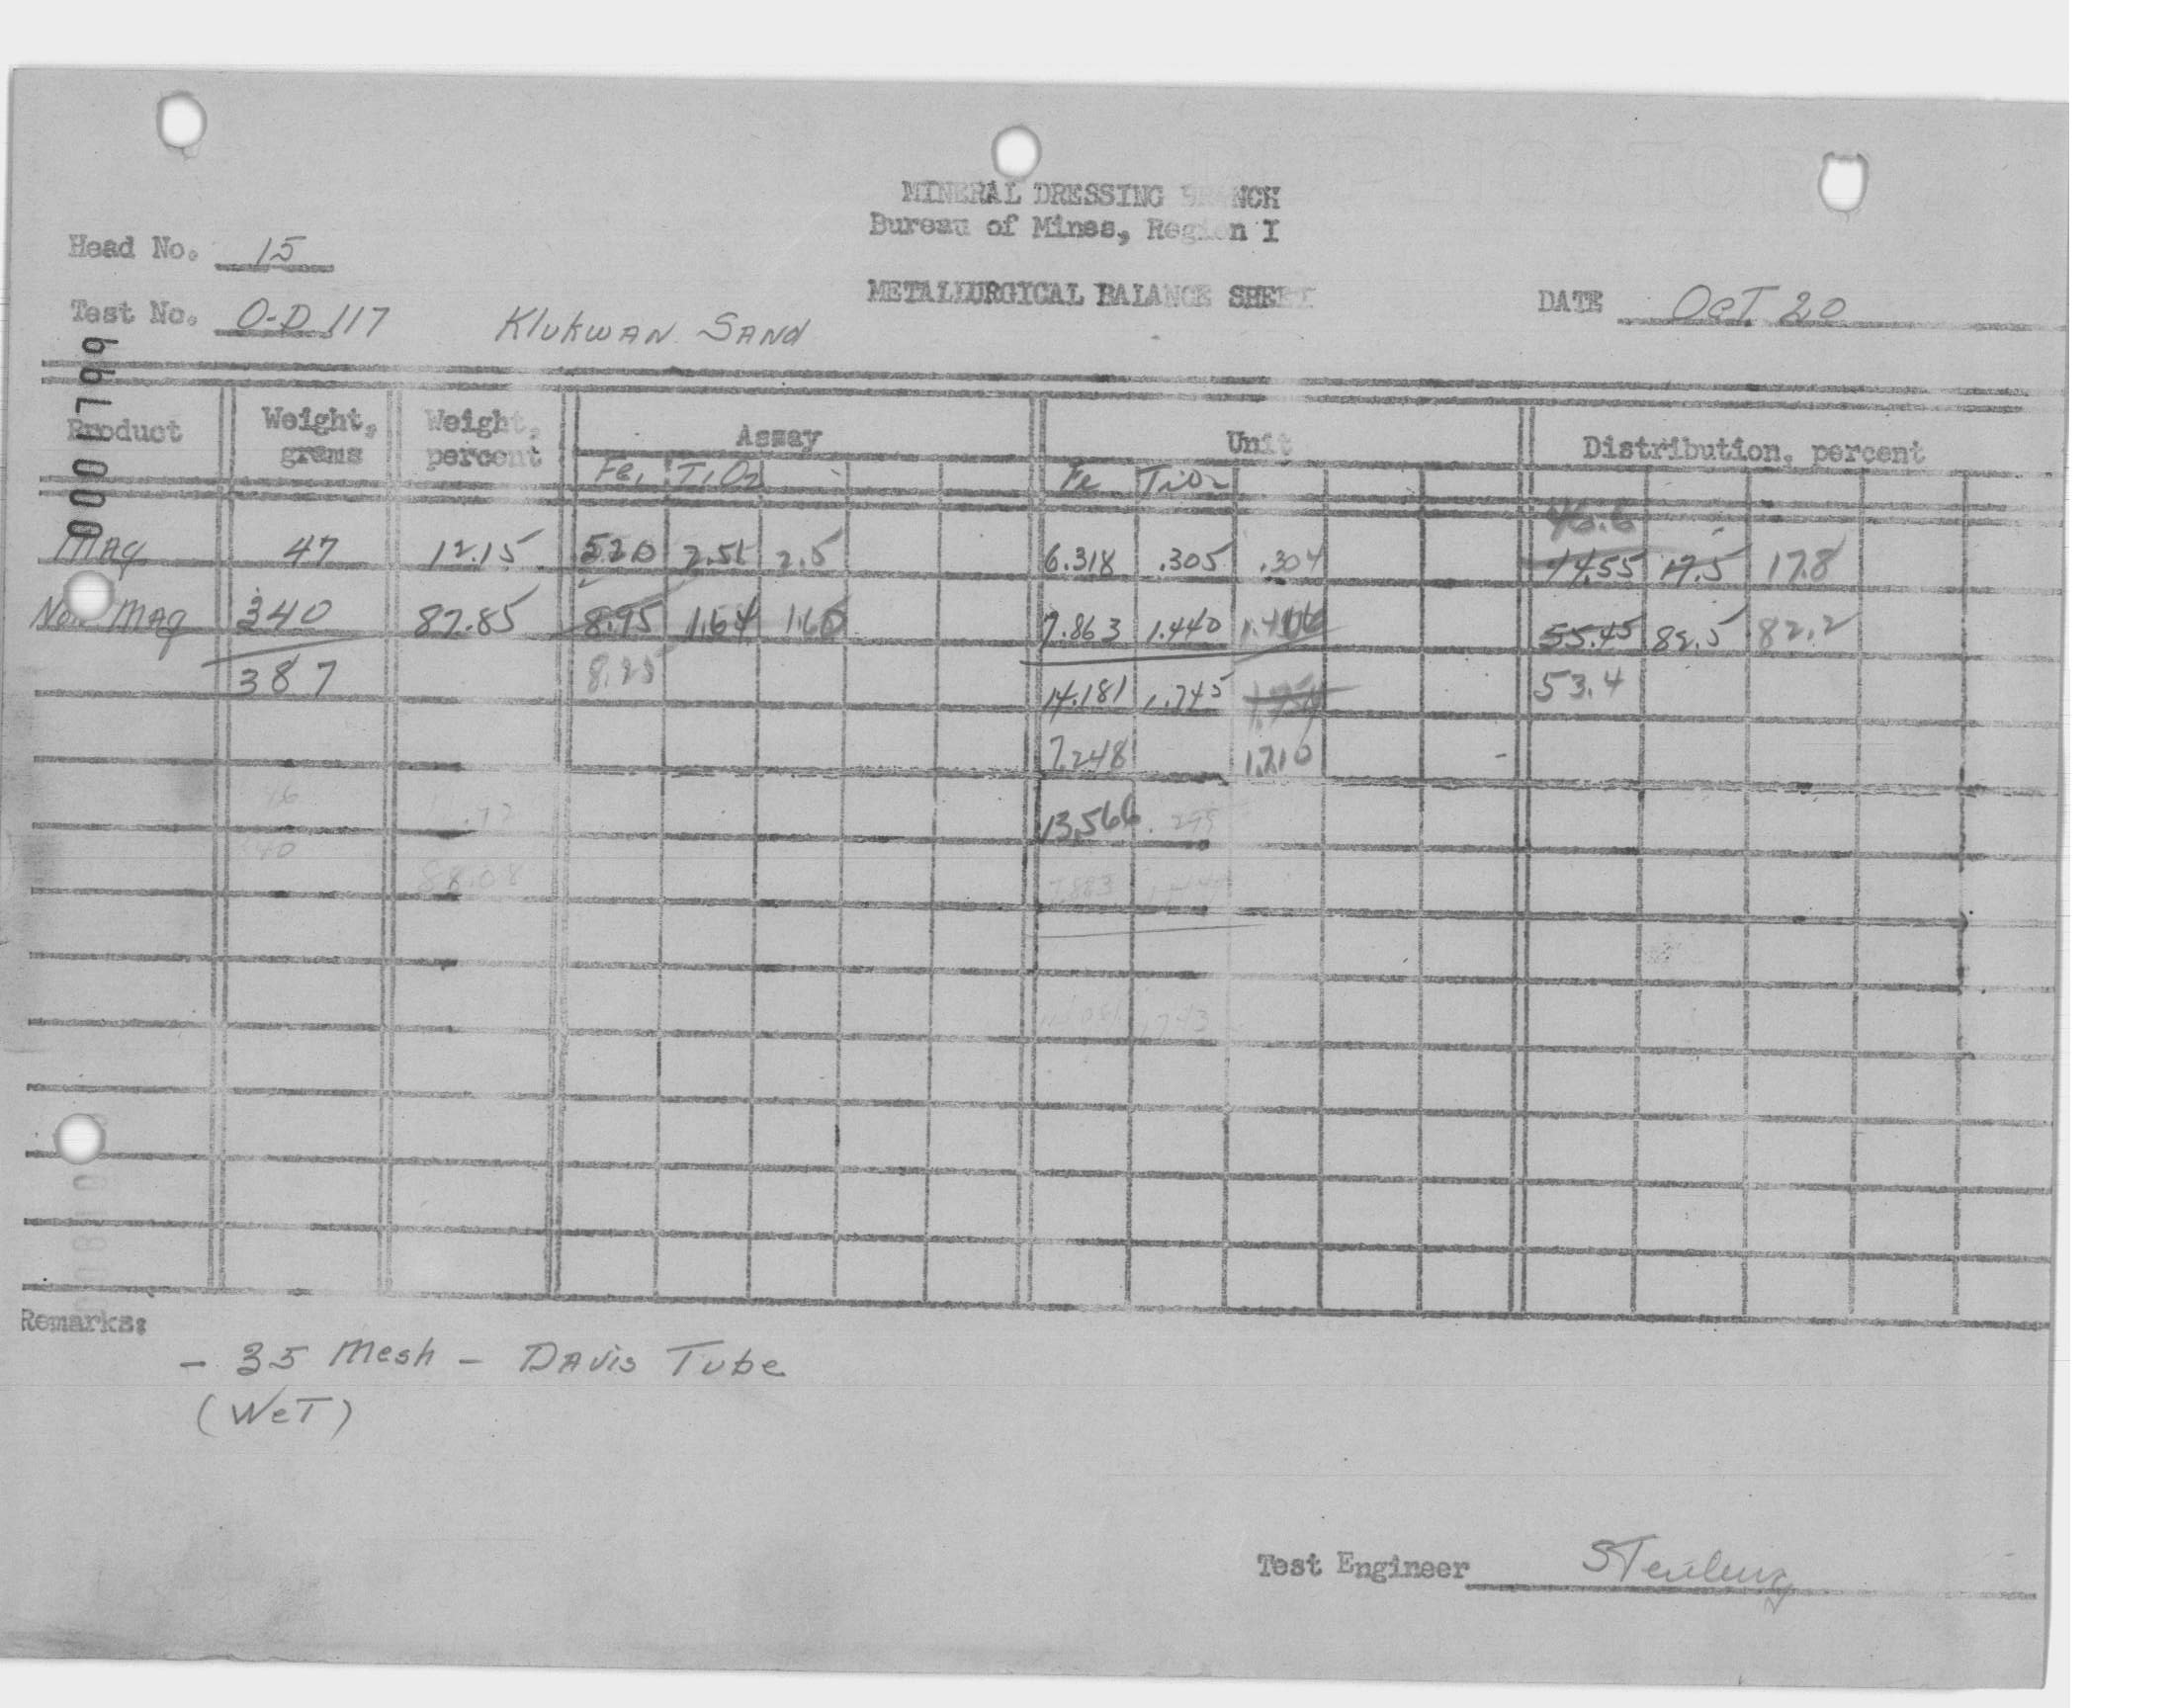 MINERAL DRESSING BRANCH
Bureau of Mines, Region I
Head No. 15
METALLURGICAL BALANCE SHEET
DATE Oct 20
Test No. O-D 117 Klukwan Sand
0001799
Product Weight, grams Weight, percent Assay Unit Distribution, percent
Fe, TiO2 Fe TiO2
46.6
Mag 47 12.15 52.0 2.51 2.5 6.318 .305 .304 44.55 17.5 17.8
Non Mag 340 87.85 8.95 1.64 1.60 7.863 1.440 1.406 55.45 82.5 82.2
387 8.25 14.181 1.745 53.4
7.248 1.710
46
13.566 .295
40
88.08 7.883
1.743
Remarks:
- 35 Mesh - Davis Tube
(Wet)
Test Engineer Sterling